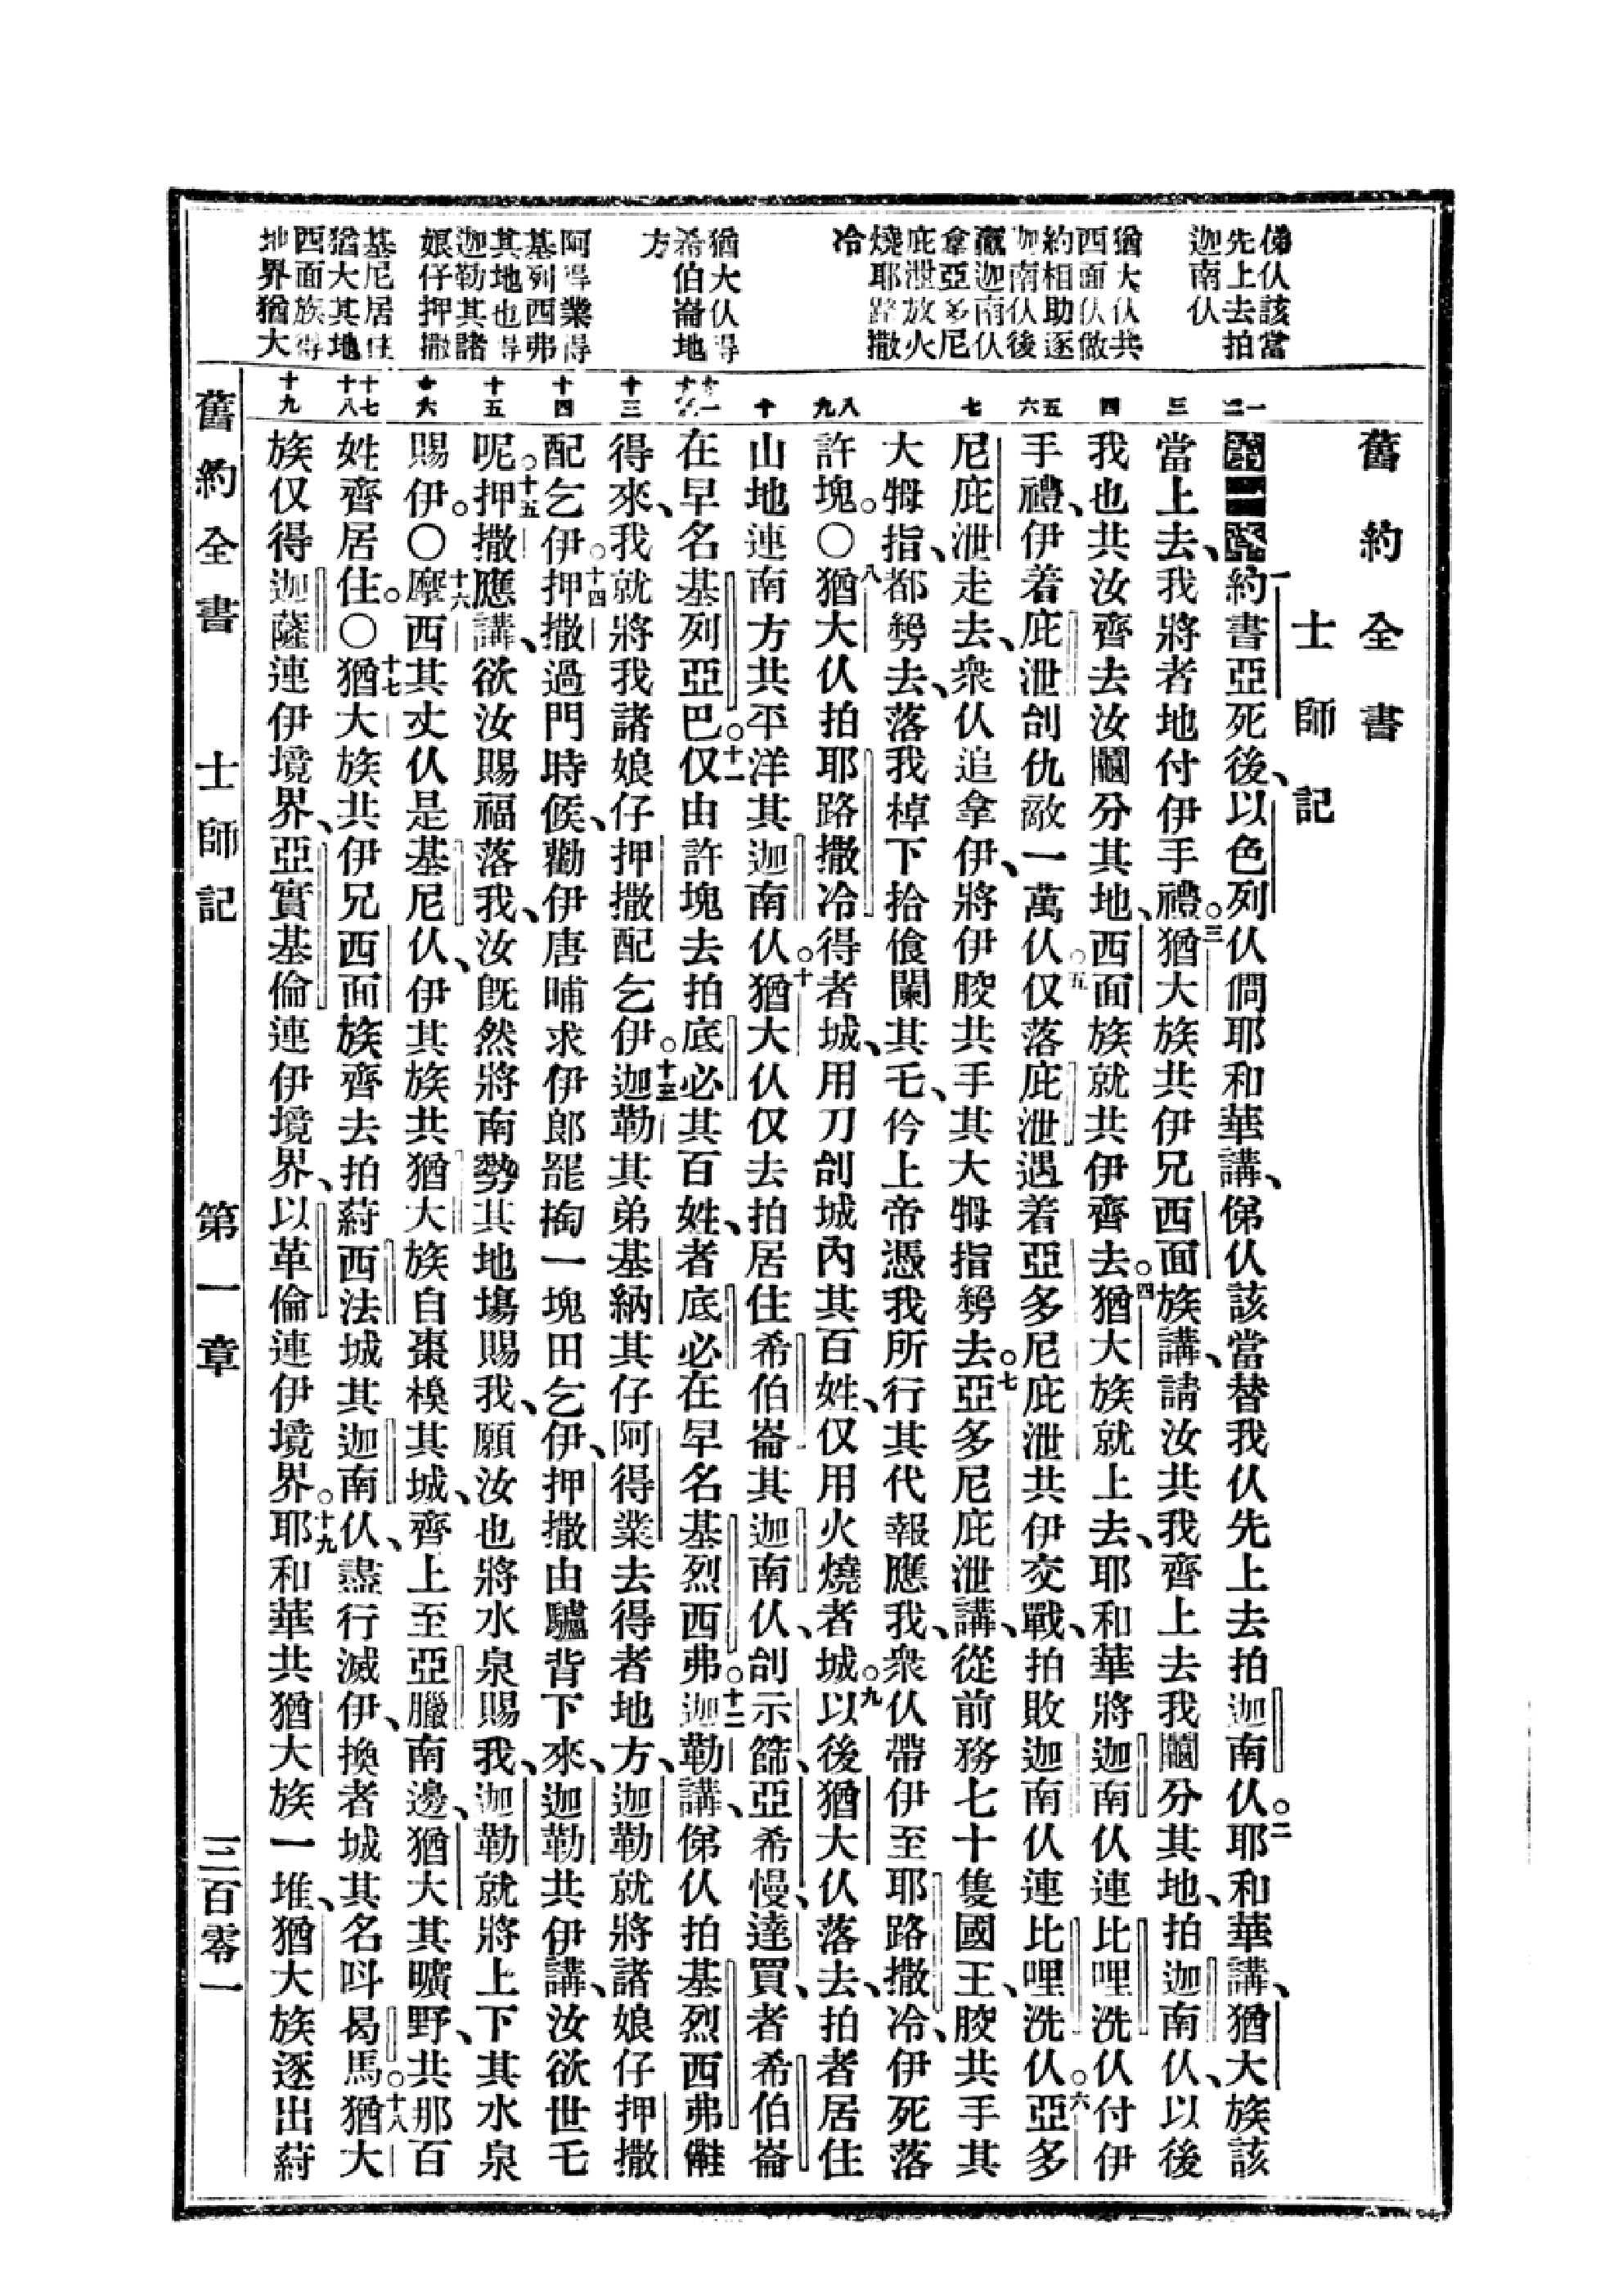 舊約全書
士師記
俤仈該當
先上去拍
迦南仈
猶大仈共
西面仈做
約相助逐
迦南仈後
贏迦南仈
拿亞多尼
庇泄放火
燒耶路撒
冷
猶大仈得
希伯崙地
方
阿得業得
基列西弗
其地也得
迦勒其諸
娘仔押撒
基尼居住
猶大其地
西面族得
地界猶大
一二 三 四 五六 七 八九 十 十一十二 十三 十四 十五 十六 十七十八 十九
第一章約書亞死後、以色列仈問耶和華講、俤仈該當替我仈先上去拍迦南仈。二耶和華講、猶大族該
當上去、我將者地付伊手禮。三猶大族共伊兄西面族講、請汝共我齊上去我鬮分其地、拍迦南仈、以後
我也共汝齊去汝鬮分其地、西面族就共伊齊去。四猶大族就上去、耶和華將迦南仈連比哩洗仈付伊
手禮、伊着庇泄刣仇敵一萬仈。五仅落庇泄遇着亞多尼庇泄共伊交戰、拍敗迦南仈連比哩洗仈。六亞多
尼庇泄走去、衆仈追拿伊、將伊骹共手其大拇指剺去。七亞多尼庇泄講、從前務七十隻國王、骹共手其
大拇指、都剺去、落我棹下拾闌其乇、仱上帝憑我所行其代報應我、衆仈帶伊至耶路撒冷、伊死落
許塊。〇八猶大仈拍耶路撒冷得者城、用刀刣城內其百姓、仅用火燒者城。九以後猶大仈落去、拍者居住
山地連南方共平洋其迦南仈。十猶大仈仅去拍居住希伯崙其迦南仈、刣示篩、亞希慢、達買、者希伯崙
在早名基列亞巴。十一仅由許塊去拍底必其百姓、者底必在早名基烈西弗。十二迦勒講、俤仈拍基烈西弗
得來、我就將我諸娘仔押撒配乞伊。十三迦勒其弟基納其仔阿得業去得者地方、迦勒就將諸娘仔押撒
配乞伊。十四押撒過門時候、勸伊唐晡求伊郎罷掏一塊田乞伊、押撒由驢背下來、迦勒共伊講、汝欲世乇
呢。十五押撒應講、欲汝賜福落我、汝旣然將南勢其地塲賜我、願汝也將水泉賜我、迦勒就將上下其水泉
賜伊。〇十六摩西其丈仈是基尼仈、伊其族共猶大族自棗模其城、齊上至亞臘南邊、猶大其曠野、共那百
姓齊居住。〇十七猶大族共伊兄西面族齊去拍葤西法城其迦南仈、盡行滅伊、換者城其名呌曷馬。十八猶大
族仅得迦薩連伊境界、亞實基倫連伊境界、以革倫連伊境界。十九耶和華共猶大族一堆、猶大族逐出葤
舊約全書 士師記 第一章 三百零一